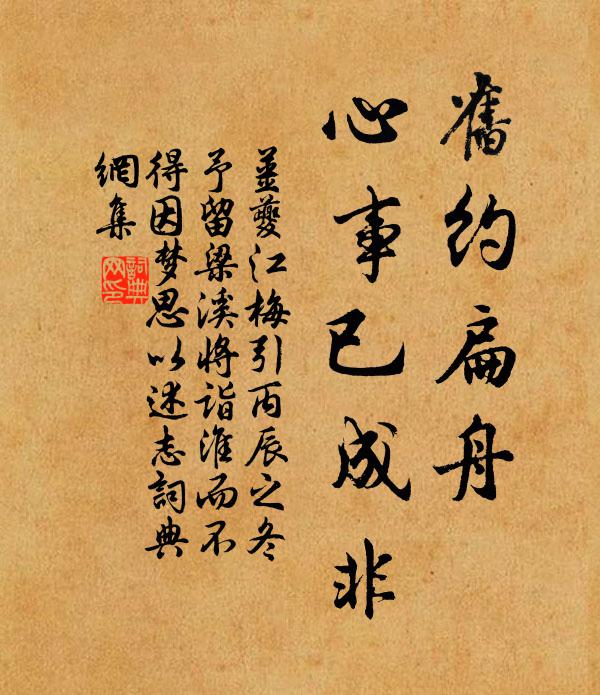 舊約扁舟
心事已成非
薑夔江梅引丙辰之冬
予留梁溪將詣淮而不
得因梦思以述志詞典
網集
詞典
网印